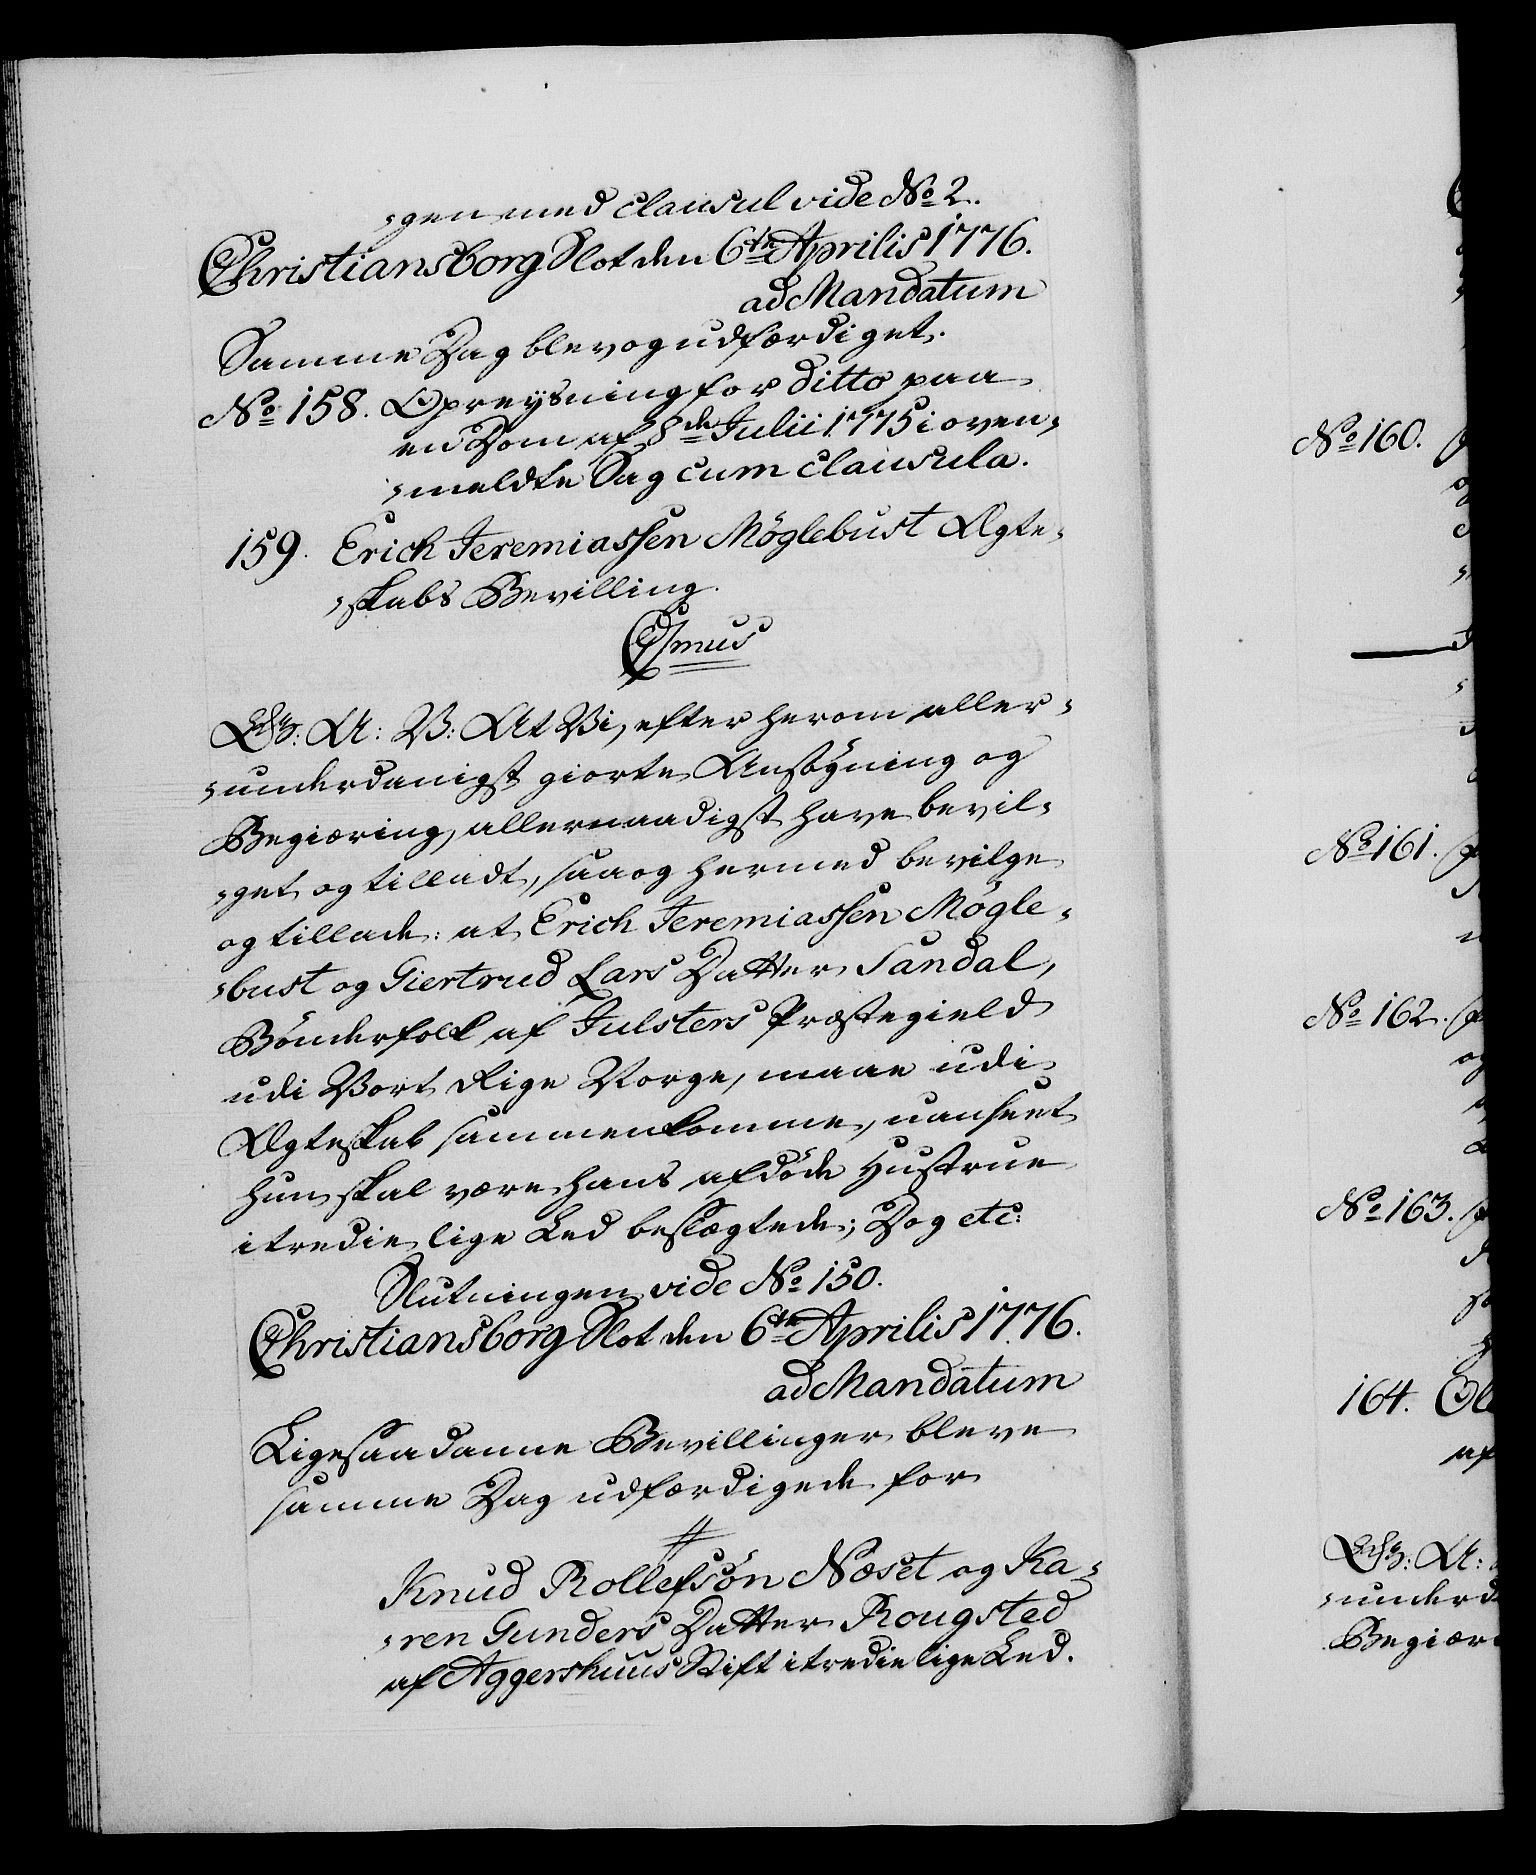 -gen med clausul vide No 2.
Christiansborg Slot den 6te Aprilis 1776.
ad Mandatum
Samme Dag blev og udfærdiget.
No 158. Opreysning for ditto paa
en Dom af 8de Julii 1775 i oven-
-meldte Sag cum clausula.
159. Erich Jeremiassen Möglebust Ægte-
-skabs Bevilling.
C7mus
G: A: V: At Vi, efter herom aller-
-underdanigst giorte Ansögning og
Begiæring, allernaadigst have bevil-
-get og tilladt, saa og hermed bevilge
og tillade: at Erich Jeremiassen Mögle-
-bust og Giertrud Lars Datter Sandal,
Bönderfolk af Julsters Præstegield
udi Vort Rige Norge, maae udi
Ægteskab sammenkomme, uanseet
hun skal være hans afdöde Hustrue
i tredie lige Led beslægtede; Dog etc:
Slutningen vide No 150.
Christiansborg Slot den 6te Aprilis 1776.
ad Mandatum
Ligesaadanne Bevillinger bleve
samme Dag udfærdigede for
#
Knud Rollefsön Næset og Ka-
-ren Gunders Datter Rougsted
af Aggershuus Stift i tredie lige Led.
No 160.
No 161.
No 162.
No 163.
164. Ole
af
G: A:
-underd
Begiær